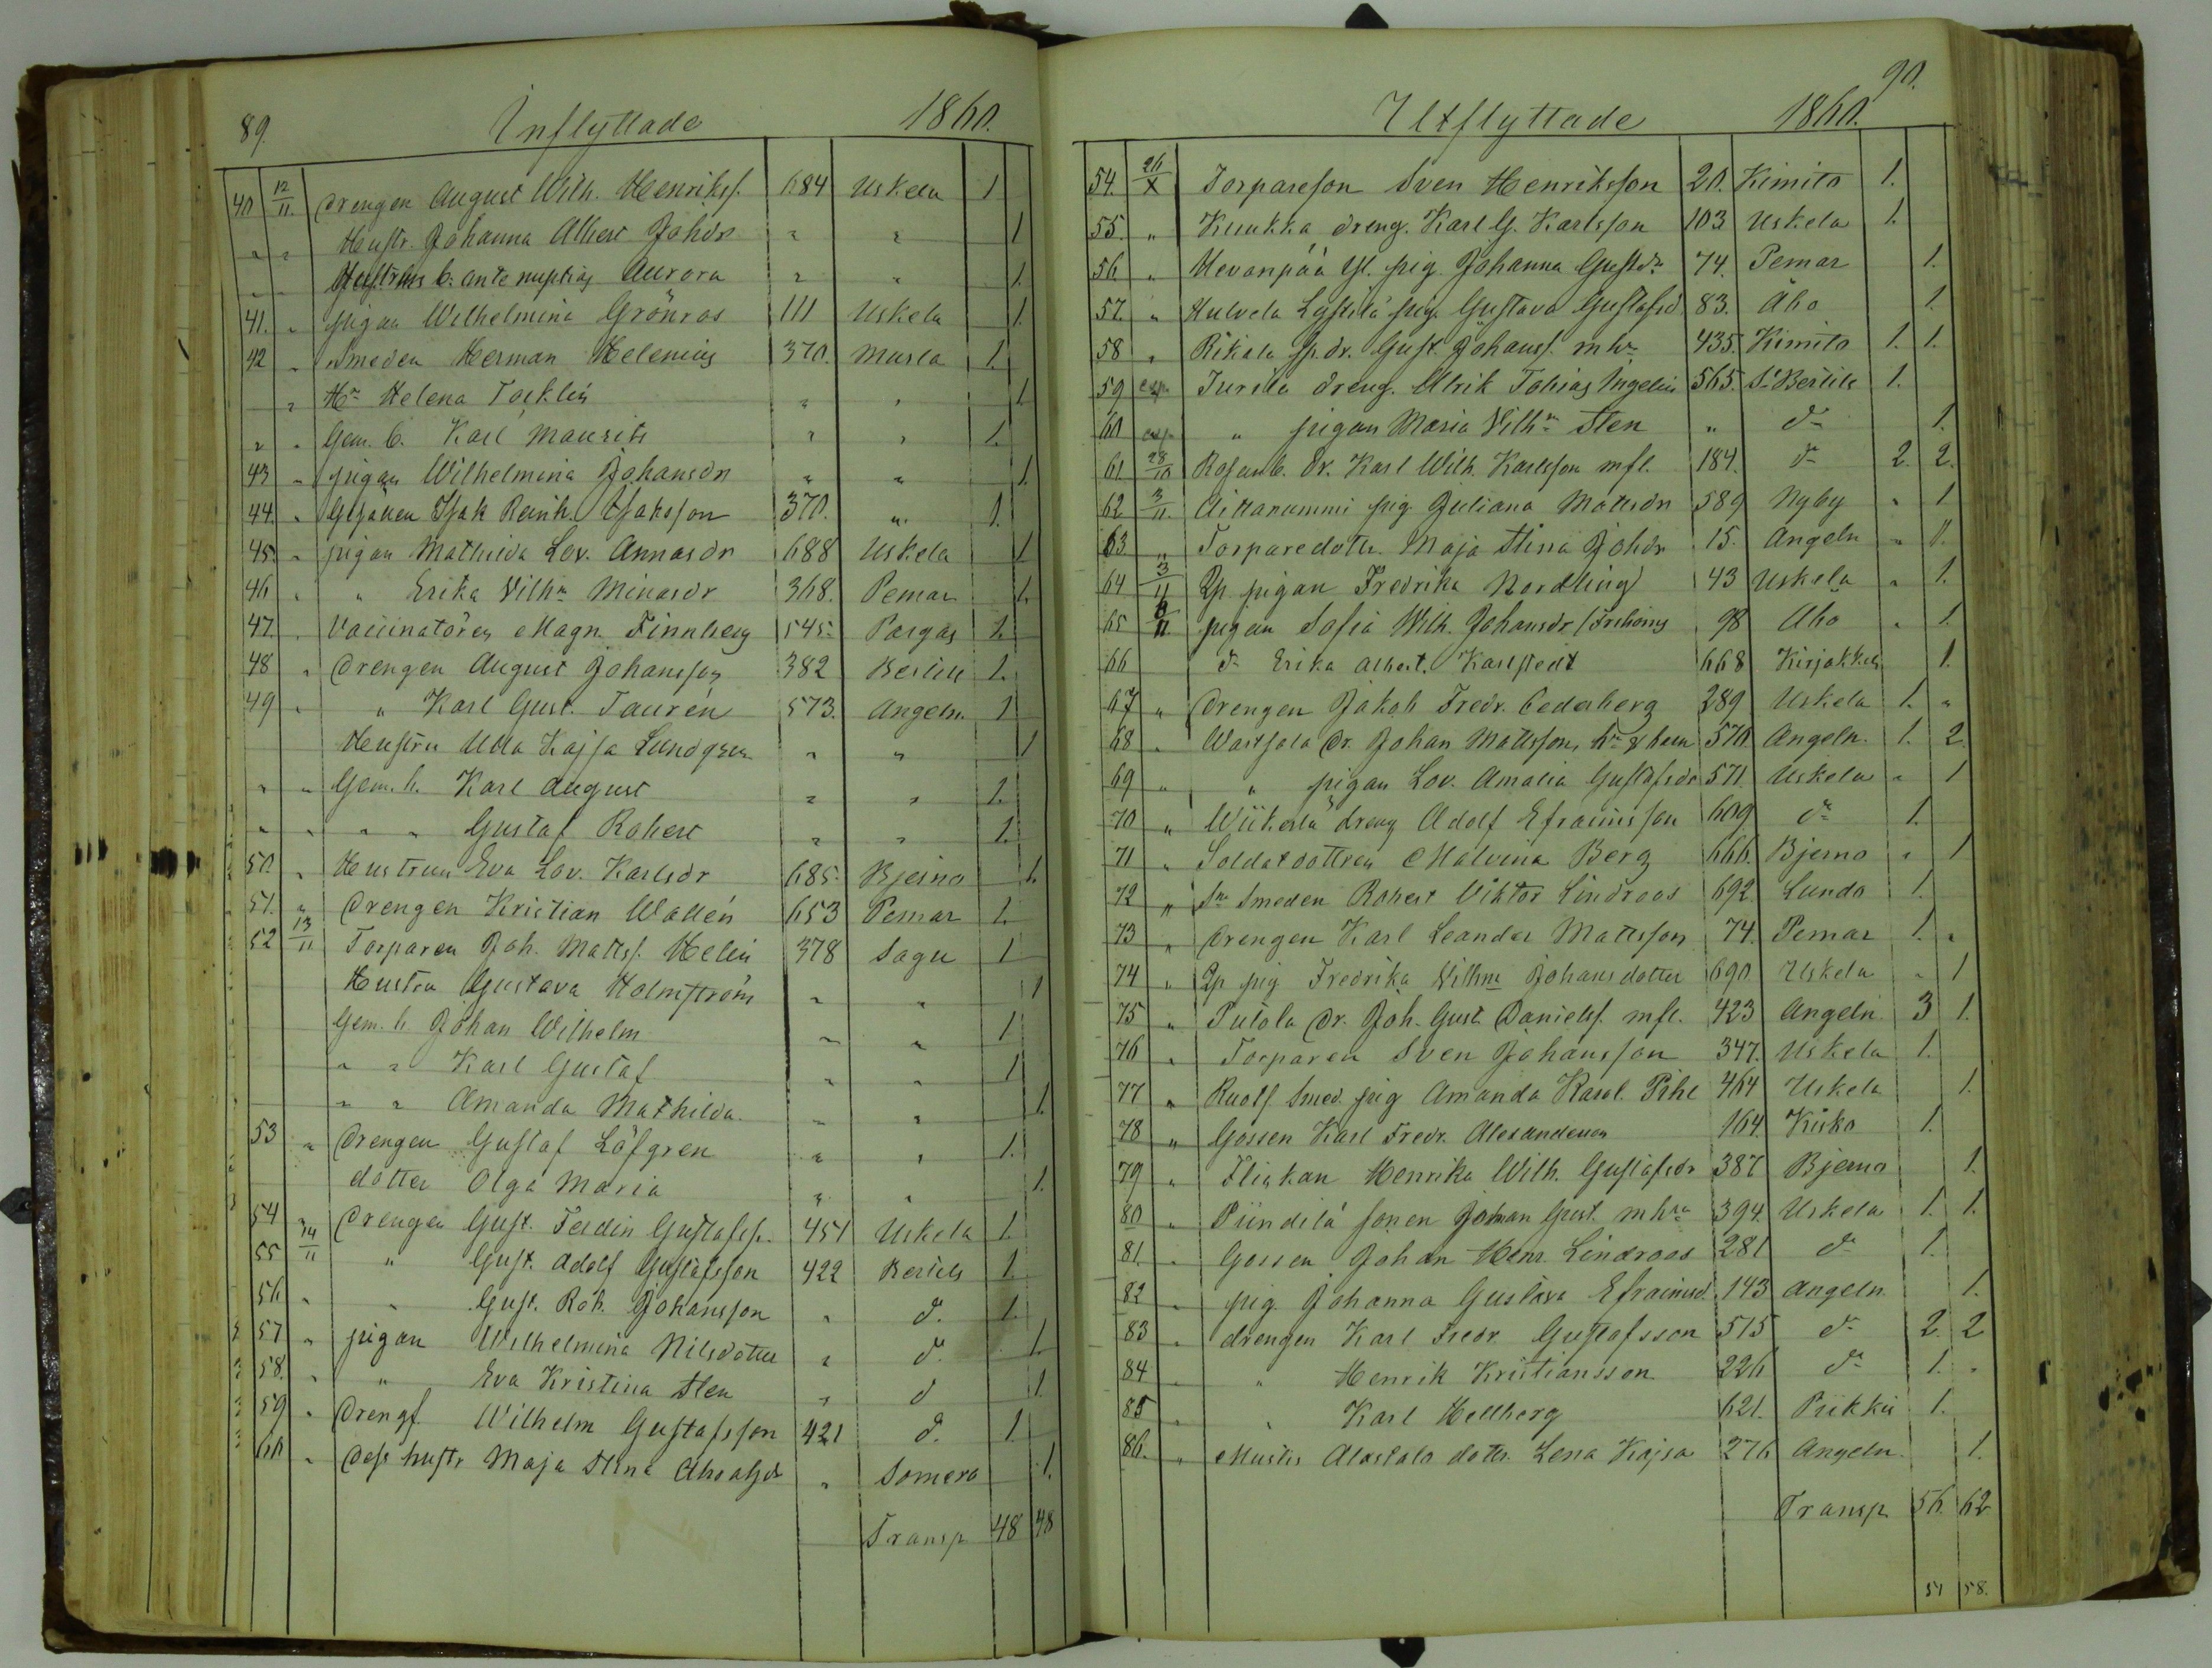 89. Inflyttade 1860.
40 12/11. Drengen August Wilh. Henrikss. 684 Uskela 1
" " Hustr. Johanna Albert. Johdr " " 1
" " Hustruns b. ante nuptias Aurora " " 1.
41. " pigan Wilhelmina Grönros 111 Uskela 1.
42 " Smeden Herman Helenius 370. 1.
" Hu Helena " " 1.
" " Gem. b. Karl Maurits " " 1.
43 " pigan Wilhelmina Johansdr " " 1.
44. " Isak Reinh. Isaksson 370. " 1.
45. " pigan Mathilda Lov. Annasdr 688 Uskela 1
46 " " Erika Vilhna Minasdr 368. Pemar 1.
47. " Vaccinatören Magn. Finnberg 545. Pargas 1.
48 " Drengen August Johansson 382 Bertils 1.
49 " " Karl Gust. Taurén 573. Angeln. 1
Hustru Ulla Kajsa Lundgren " " 1
" " Gem. b. Karl August " " 1.
" " " " Gustaf Robert " " 1.
50. " Hustrun Eva Lov. Karlsdr 685. Bjerno 1.
51. " Drengen Kristian Wallén 653 Pemar 1.
52 13/11 Torparen Joh. Mattss. Helin 378 Sagu 1
Hustru Gustava Holmström " " 1
Gem. b. Johan Wilhelm " " 1
" " Karl Gustaf " " 1
" " Amanda Mathilda " " 1.
53 " Drengen Gustaf Löfgren " " 1.
dotter Olga Maria " " 1.
54 " Drengen Gust. Ferdin Gustafss. 451 Uskela 1.
55 14/11 " Gust. Adolf Gustafsson 422 Bertils 1.
56 " " Gust. Rob. Johansson " d. 1.
57 " pigan Wilhelmina Nilsdotter " d. 1.
58. " " Eva Kristina Sten " d 1
59 " Drengf. Wilhelm Gustafsson 421 d. 1.
60 " Dess hustr Maja Stina " Somero 1.
Transp 48 48
90.
Utflyttade 1860.
54. 26/X Torpareson Sven Henriksson 20. Kimito 1.
55. " Kuukka dreng. Karl G. Karlsson 103 Uskela 1.
56 " Hevonpää Yl. pig. Johanna Gustdr 74. Pemar 1.
57. " Hulvela Lystilä pig. Gustava Gustafsd 83. Åbo 1.
58 " Rikala sp. dr. Gust. Johanss. m hu 435. Kimito 1. 1.
59 exp. Juvila dreng. Ulrik Tobias Ingelin 565. St Bertils 1.
60 exp. " pigan Maria Vilhna Sten " do 1.
61. 28/10 Rosenb. dr. Karl Wilh. Karlsson m fl. 184. do 2. 2.
62 3/11. Aittanummi pig Juliana Mattsdr 589 Nyby " 1
63 " Torparedottr. Maja Stina Johdr 15. Angeln " 1.
64 3/11 Qp pigan Fredrika Nordling 43 Uskela " 1.
65 6/11. pigan Sofia Wilh. Johansdr 98 Åbo " 1.
66 do Erika Albert. Karlstedt 668 Kirjakkala 1.
67 " Drengen Jakob Fredr. Cederberg 289 Uskela 1. "
68 " Wartsala Dr. Johan Mattsson, hu & barn 570. Angeln. 1. 2.
69 " " pigan Lov. Amalia Gustafsdr 571. Uskela " 1
70 " Wiikerlä dreng Adolf Efraimsson 609 do 1.
71 " Soldatdottren Malvina Berg 666. Bjerno " 1
72 " Sn Smeden Robert Viktor Lindroos 692. Lundo 1.
73 " Drengen Karl Leander Mattsson 74. Pemar 1. "
74 " Qp pig Fredrika Vilhma Johansdotter 690. Uskela " 1
75 " Pulola Dr. Joh. Gust. Danielss. m fl. 423 Angeln 3 1.
76 " Torparen Sven Johansson 347. Uskela 1.
77 " Ruots. Smed. pig Amanda Karol. Pihl 464 Uskela 1.
78 " Gossen Karl Fredr. Alexandersson 164. Kisko 1.
79 " Flickan Henrika Wilh. Gustafsdr 387 Bjerno 1.
80 " Piindilä sonen Johan Gust. m hru 394. Uskela 1. 1.
81. " Gossen Johan Henr. Lindroos 281 do 1.
82 " pig. Johanna Gustava Efraimsd. 143 Angeln. 1.
83 " drengen Karl Fredr. Gustafsson 515 do 2. 2
84 " " Henrik Kristiansson 226 do 1. "
85 " " Karl Hellberg 621. Piikkis 1.
86. " Mustis Alastalo dottr. Lena Kajsa 276 Angeln. 1.
Transp 56. 62
51 58.